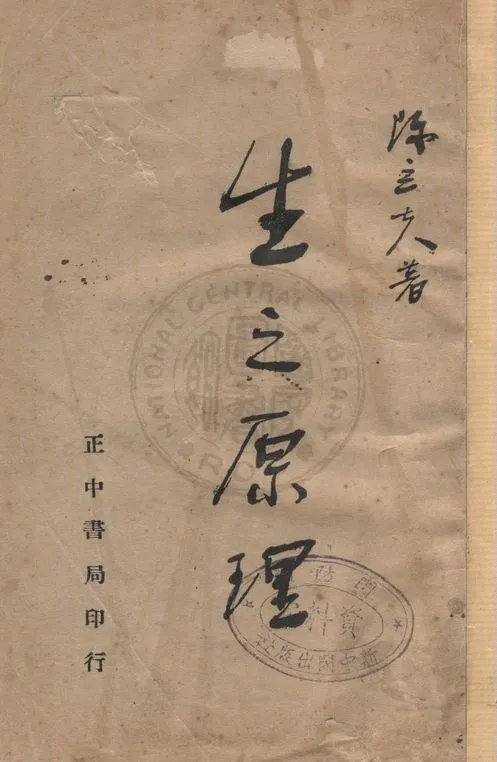 陈立夫著
生之原理
正中書局印行
NATIONAL CENTRAL LIBRARY
國防
資料
新中國出版社